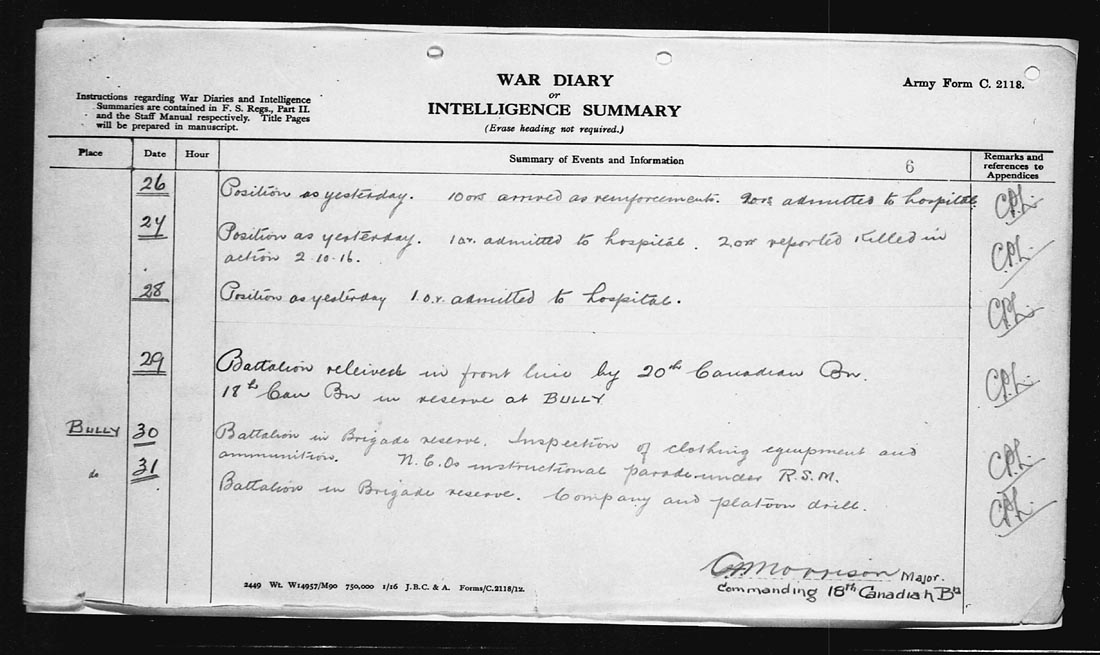 WAR DIARY
or
INTELLIGENCE SUMMARY
(Erase heading not required.)
Army Form C. 2118.
Instructions regarding War Diaries and Intelligence
Summaries are contained in F. S. Regs., Part II.
and the Staff Manual respectively. Title Pages
will be prepared in manuscript.
Place Date Hour Summary of Events and Information 6 Remarks and references to Appendices
26 Position as yesterday. 10 ors arrived as reinforcements. 2 ors admitted to hospital
27 Position as yesterday. 1 or. admitted to hospital. 2 ors reported killed in
action 2 10-16.
28 Position as yesterday 1.o.r. admitted to hospital.
29 Battalion releived in front line by 20th Canadian Bn.
18th Can Bn in reserve at BULLY
BULLY 30 Battalion in Brigade reserve. Inspection of clothing equipment and
ammunition. N.C.Os instructional parade under R.S.M.
do 31 Battalion in Brigade reserve. Company and platoon drill.
Morrison Major.
Commanding 18th Canadian Bn
2449 Wt. W14957/M90 750,000 1/16 J.B.C. & A. Forms/C.2118/12.